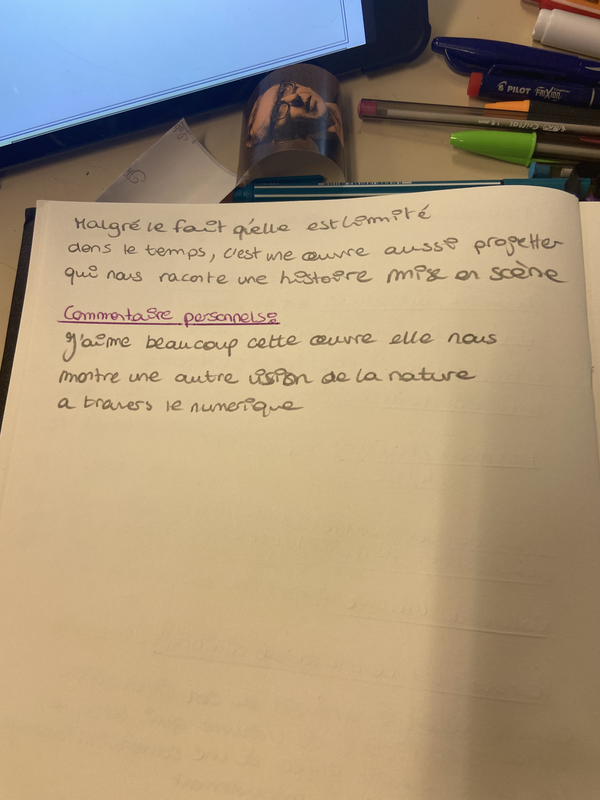 PILOT FriXion
Malgré le fait qu'elle est limité
dans le temps, c'est une œuvre aussi projetter
qui nous raconte une histoire mise en scène
Commentaire personnels :
J'aime beaucoup cette œuvre elle nous
montre une autre vision de la nature
a travers le numerique